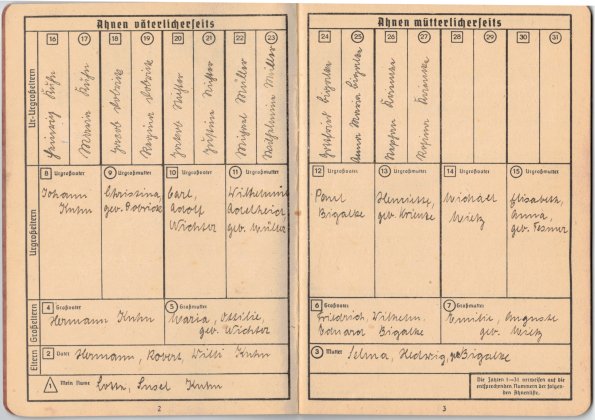 Ahnen väterlicherseits
Ur-Urgroßeltern
16 17 18 19 20 21 22 23
Heinrich Kuhn
Maria Kuhn
Jacob Dobrick
Regina Dobrick
Jacob Wichter
Justine Wichter
Michael Müller
Wilhelmine Müller
Urgroßeltern
8 Urgroßvater
Johann
Kuhn
9 Urgroßmutter
Christina,
geb. Dobrick
10 Urgroßvater
Carl,
Adolf
Wichter
11 Urgroßmutter
Wilhelmine
Adelheid,
geb. Müller
Großeltern
4 Großvater
Hermann Kuhn
5 Großmutter
Maria, Ottilie,
geb. Wichter
Eltern
2 Vater Hermann, Robert, Willi Kuhn
1 Mein Name Lotte, Susel Kuhn
2
Ahnen mütterlicherseits
24 25 26 27 28 29 30 31
Gottfried Bigalke
Anna Maria Bigalke
12 Urgroßvater
Paul
Bigalke
13 Urgroßmutter
Henriette,
geb. Krienke
14 Urgroßvater
Michael
Mietz
15 Urgroßmutter
Elisabeth,
Anna,
geb. Tesmer
6 Großvater
Friedrich, Wilhelm
Eduard Bigalke
7 Großmutter
Emilie, Auguste
geb. Mietz
3 Mutter Selma, Hedwig, geb. Bigalke
Die Zahlen 1—31 verweisen auf die
entsprechenden Nummern der folgen-
den Ahnenliste.
3